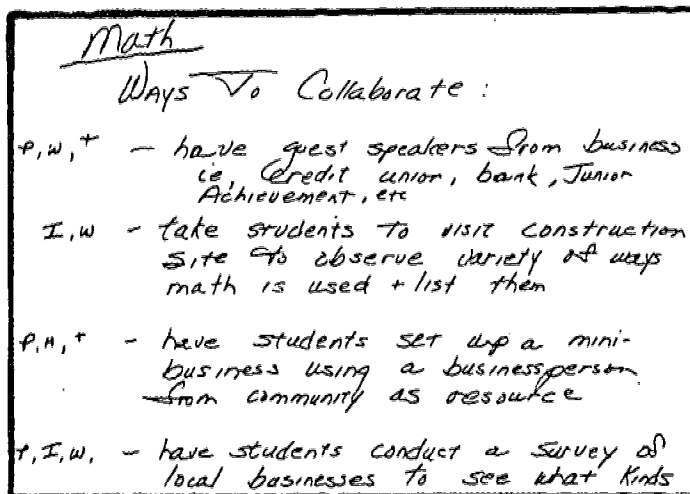 Math
Ways To Collaborate:
P, W, + - have guest speakers from business
ie, Credit union, bank, Junior
Achievement, etc
I, W - take students to visit construction
site to observe variety of ways
math is used + list them
P, H, + - have students set up a mini-
business using a businessperson
from community as resource
I, W, - have students conduct a survey of
local businesses to see what kinds